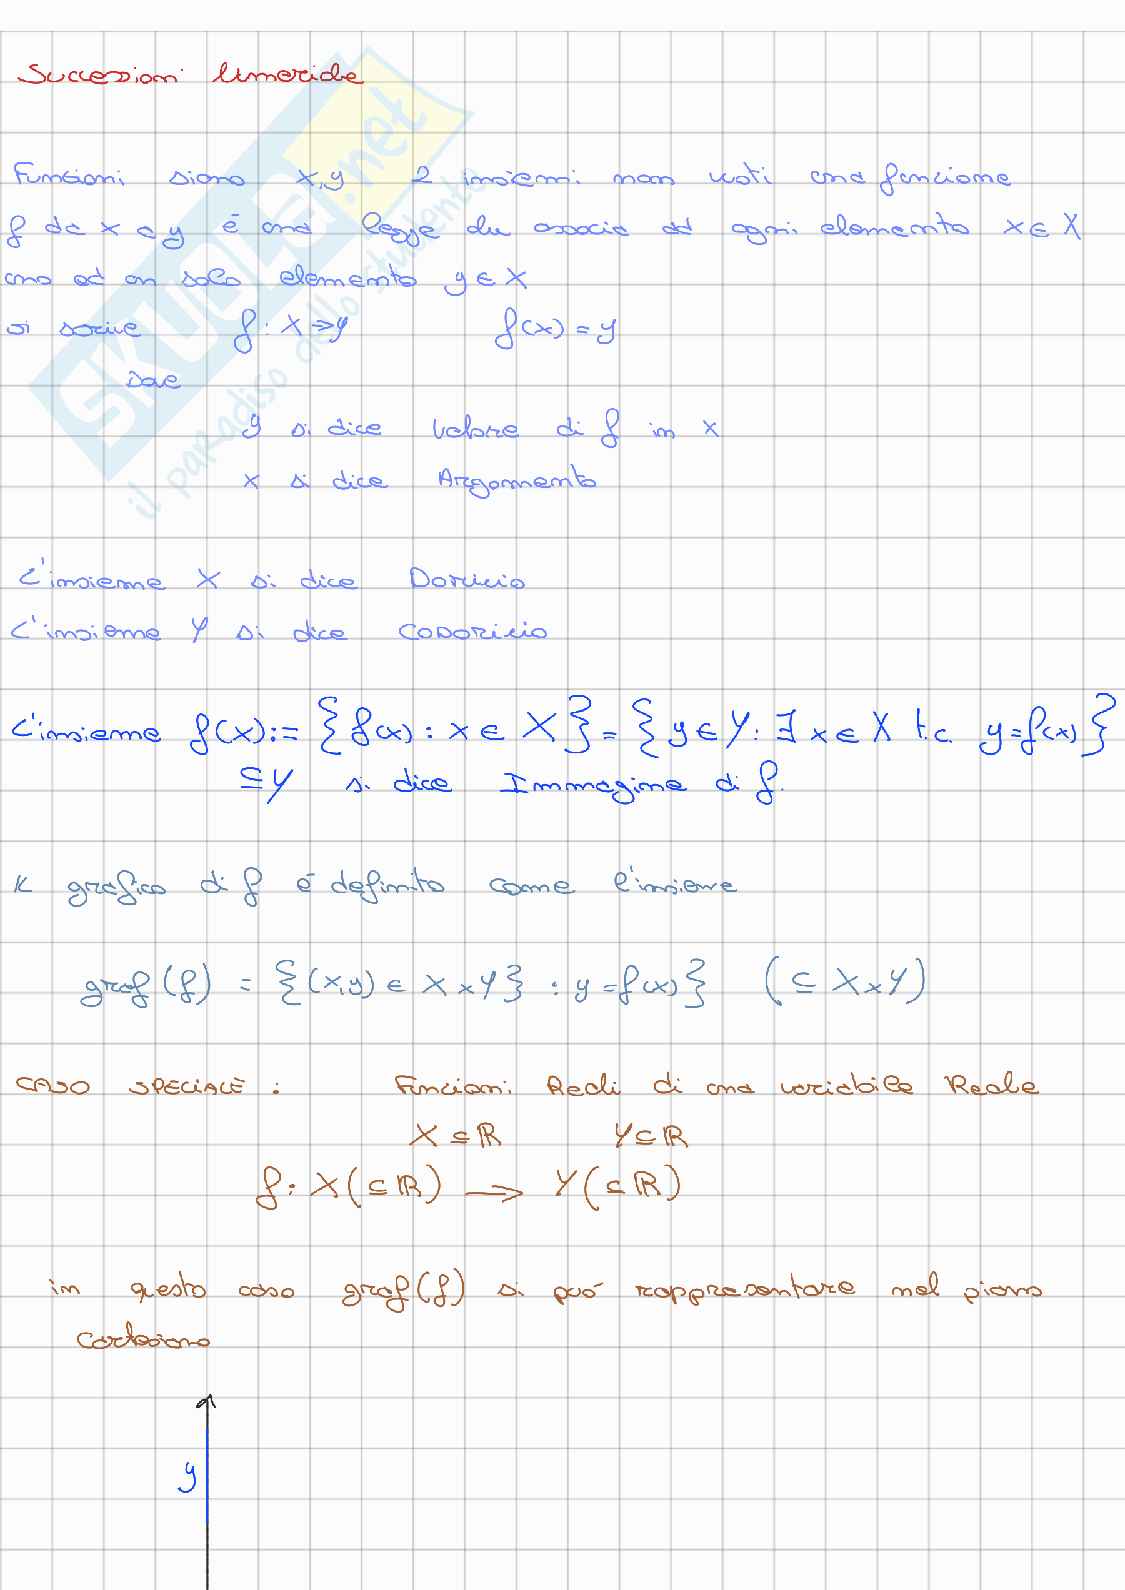 Successioni Numeriche
Funzioni siano x,y 2 insiemi non vuoti una funzione
f da x a y é una legge che associa ad ogni elemento x∈X
uno ed un solo elemento y∈X
si scrive f: X⇒y f(x)=y
Dove
y si dice valore di f in x
x si dice Argomento
L'insieme X si dice Dominio
L'insieme Y si dice CODOMINIO
L'insieme f(x):= {f(x): x∈X}={y∈Y: ∃ x∈X t.c. y=f(x)}
⊆Y si dice Immagine di f.
Il grafico di f é definito come l'insieme
graf(f) = {(x,y) ∈ X×Y} : y=f(x)} (⊆ X×Y)
CASO SPECIALE : Funzioni Reali di una variabile Reale
X⊆ℝ Y⊆ℝ
f: X(⊆ℝ) → Y(⊆ℝ)
in questo caso graf(f) si puó rappresentare nel piano
Cartesiano
y
SKUOLA.net
il paradiso dello studente